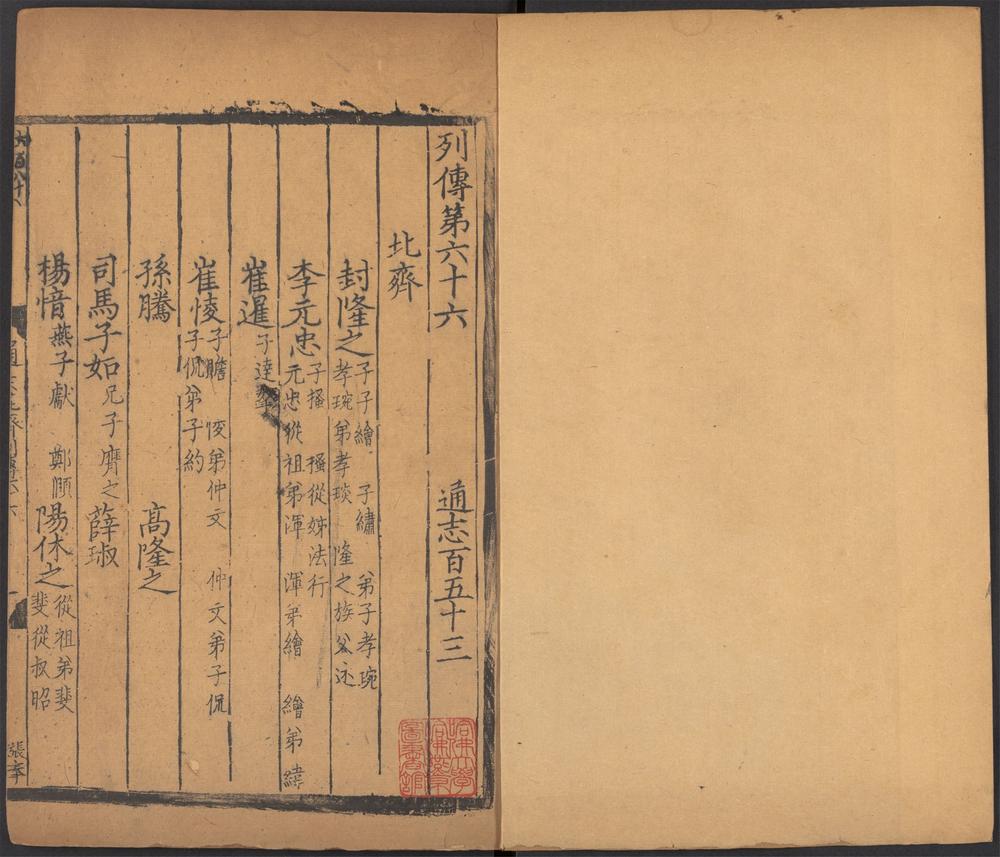 列傳第六十六　通志百五十三
北齊
封隆之 子子繪 子繡 弟子孝琬
孝琬弟孝琰 隆之族父述
李元忠 子搔 搔從姊法行
元忠從祖弟渾 渾弟繪 繪弟緯
崔暹 子達拏
崔㥄 子贍 㥄弟仲文 仲文弟子侃
子侃弟子約
孫騰　高隆之
司馬子如 兄子膺之 薛琡
楊愔 燕子獻 鄭頤 陽休之 從祖弟斐
斐從叔昭
張奉
哈佛大學哈佛燕京圖書館